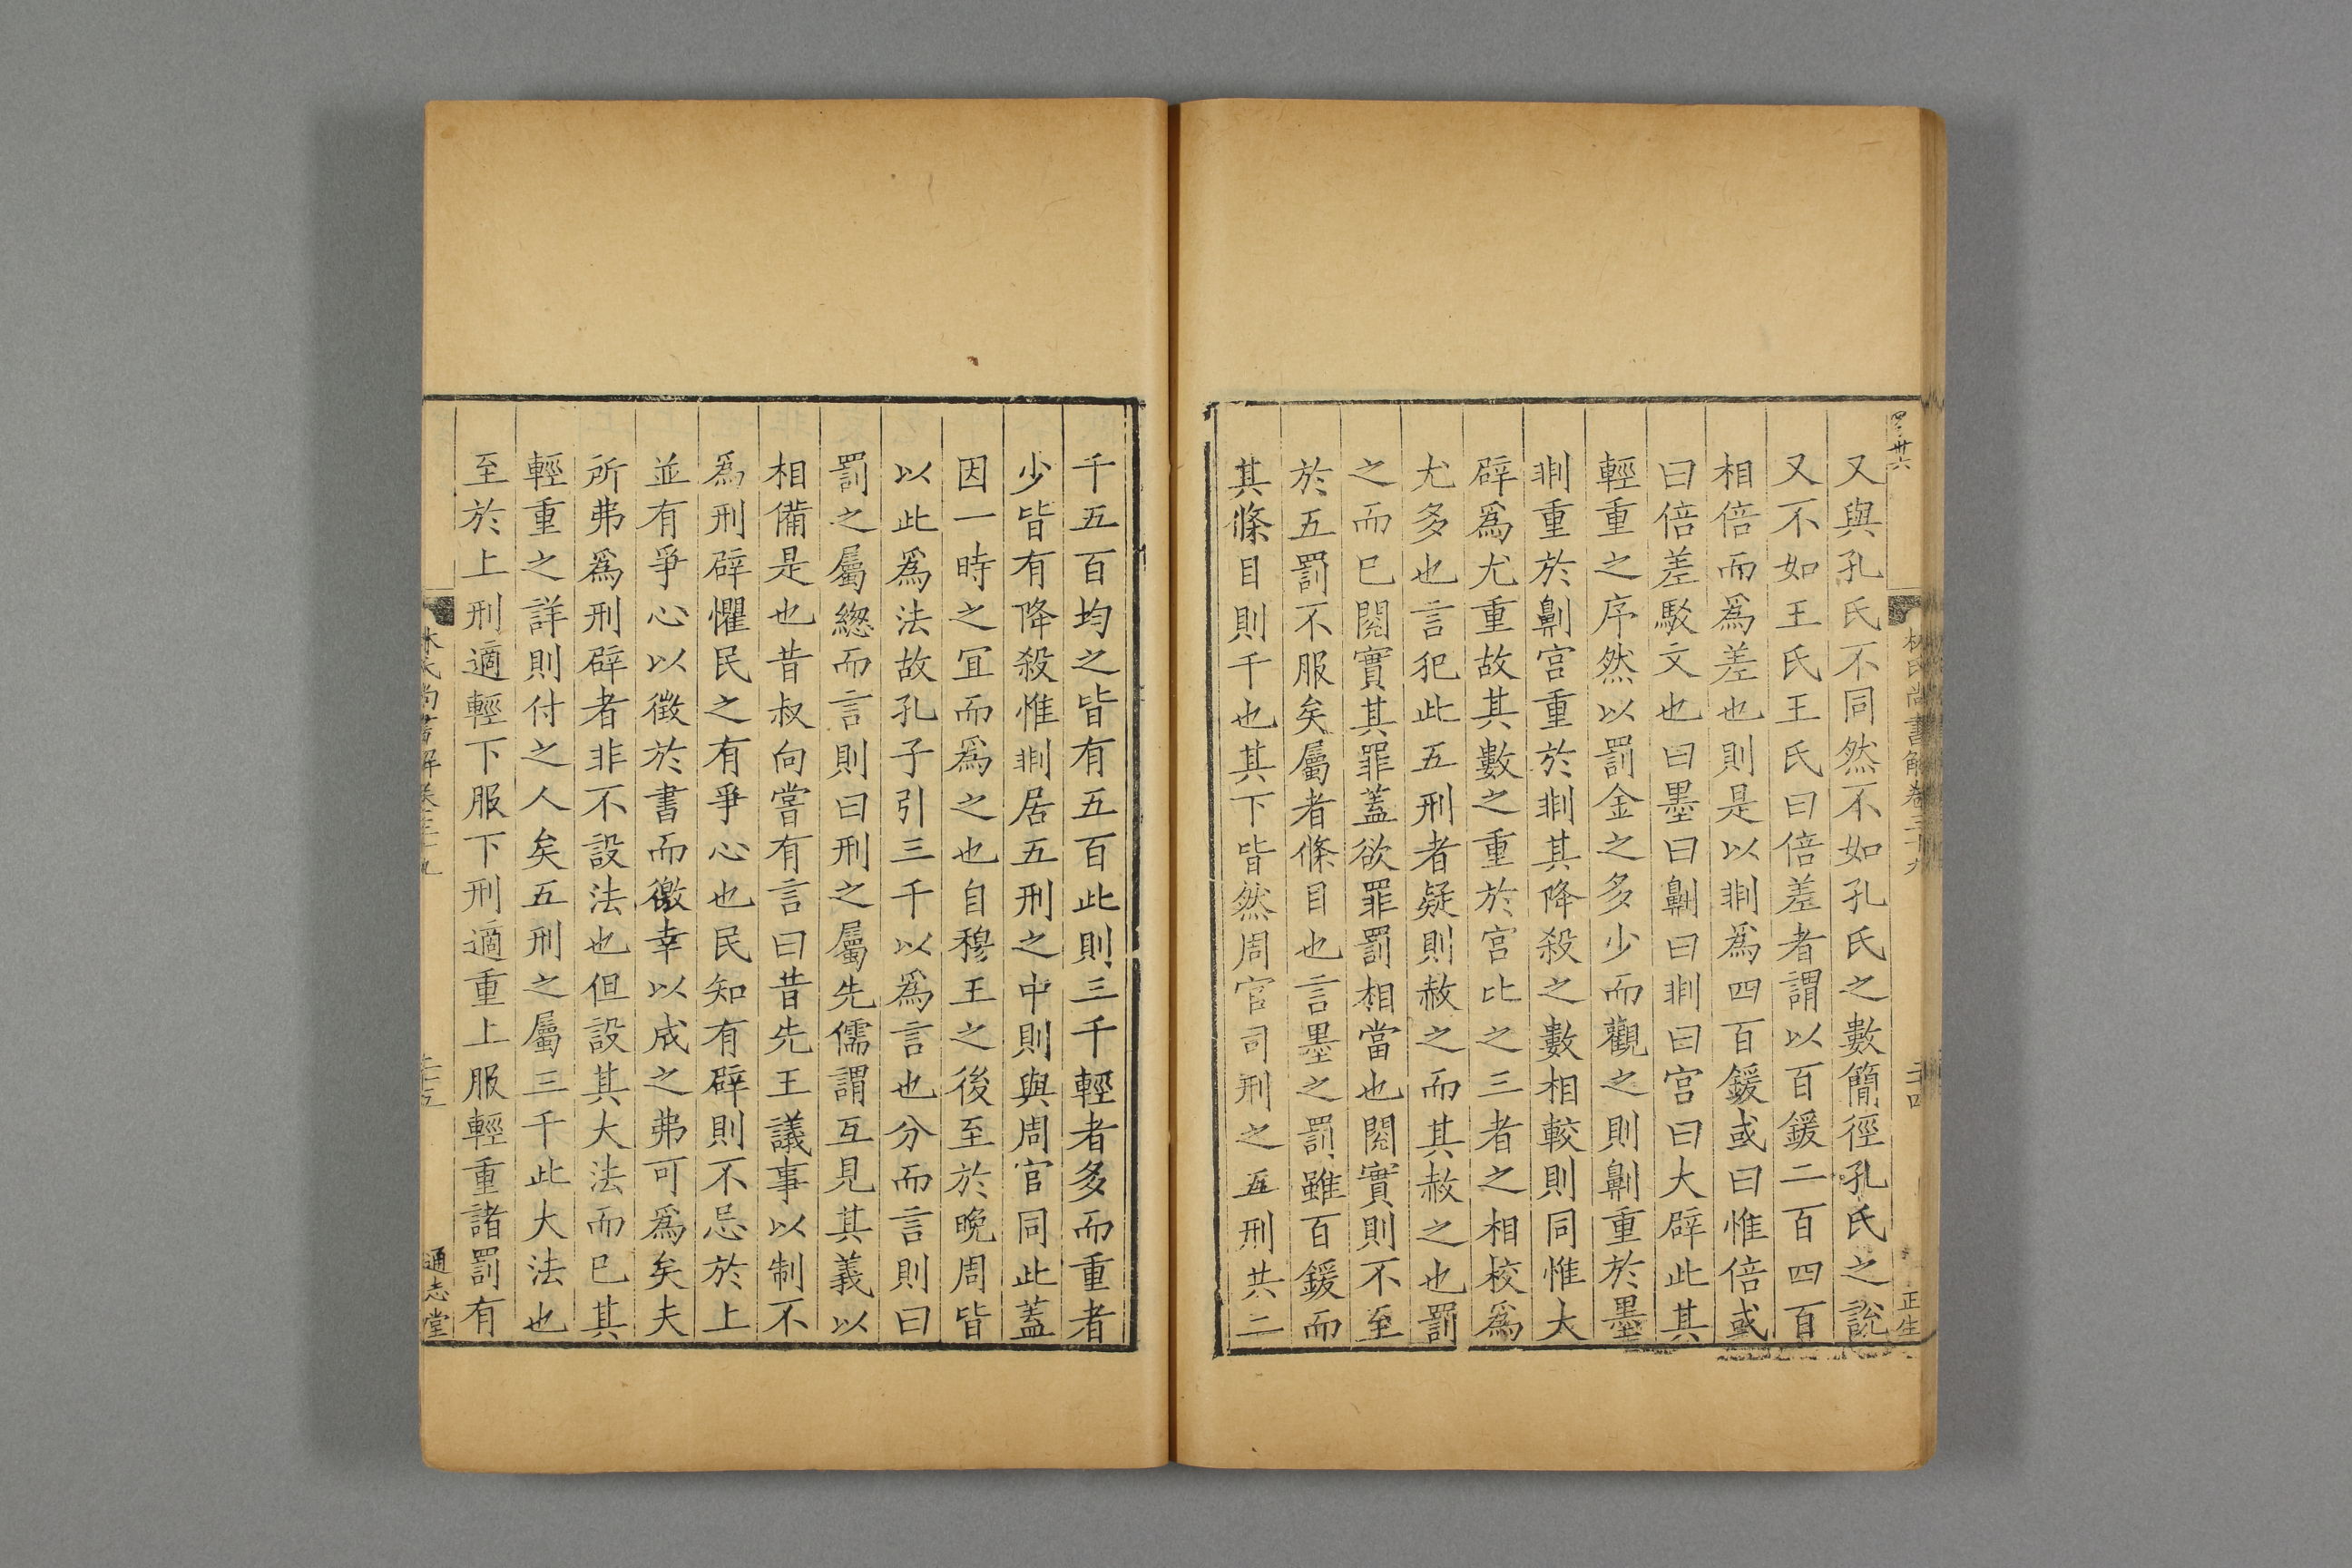 四廿六
林氏尚書解卷三十九
二十四
正生
又與孔氏不同然不如孔氏之數簡徑孔氏之說
又不如王氏王氏曰倍差者謂以百鍰二百四百
相倍而爲差也則是以剕爲四百鍰或曰惟倍或
曰倍差駁文也曰墨曰劓曰剕曰宫曰大辟此其
輕重之序然以罰金之多少而觀之則劓重於墨
剕重於劓宫重於剕其降殺之數相較則同惟大
辟爲尤重故其數之重於宫比之三者之相校爲
尤多也言犯此五刑者疑則赦之而其赦之也罰
之而已閱實其罪蓋欲罪罰相當也閱實則不至
於五罰不服矣屬者條目也言墨之罰雖百鍰而
其條目則千也其下皆然周官司刑之五刑共二
千五百均之皆有五百此則三千輕者多而重者
少皆有降殺惟剕居五刑之中則與周官同此蓋
因一時之冝而爲之也自穆王之後至於晚周皆
以此爲法故孔子引三千以爲言也分而言則曰
罰之屬緫而言則曰刑之屬先儒謂互見其義以
相備是也昔叔向嘗有言曰昔先王議事以制不
爲刑辟懼民之有爭心也民知有辟則不忌於上
並有爭心以徵於書而徼幸以成之弗可爲矣夫
所弗爲刑辟者非不設法也但設其大法而已其
輕重之詳則付之人矣五刑之屬三千此大法也
至於上刑適輕下服下刑適重上服輕重諸罰有
林氏尚書解卷三十九
二十五
通志堂